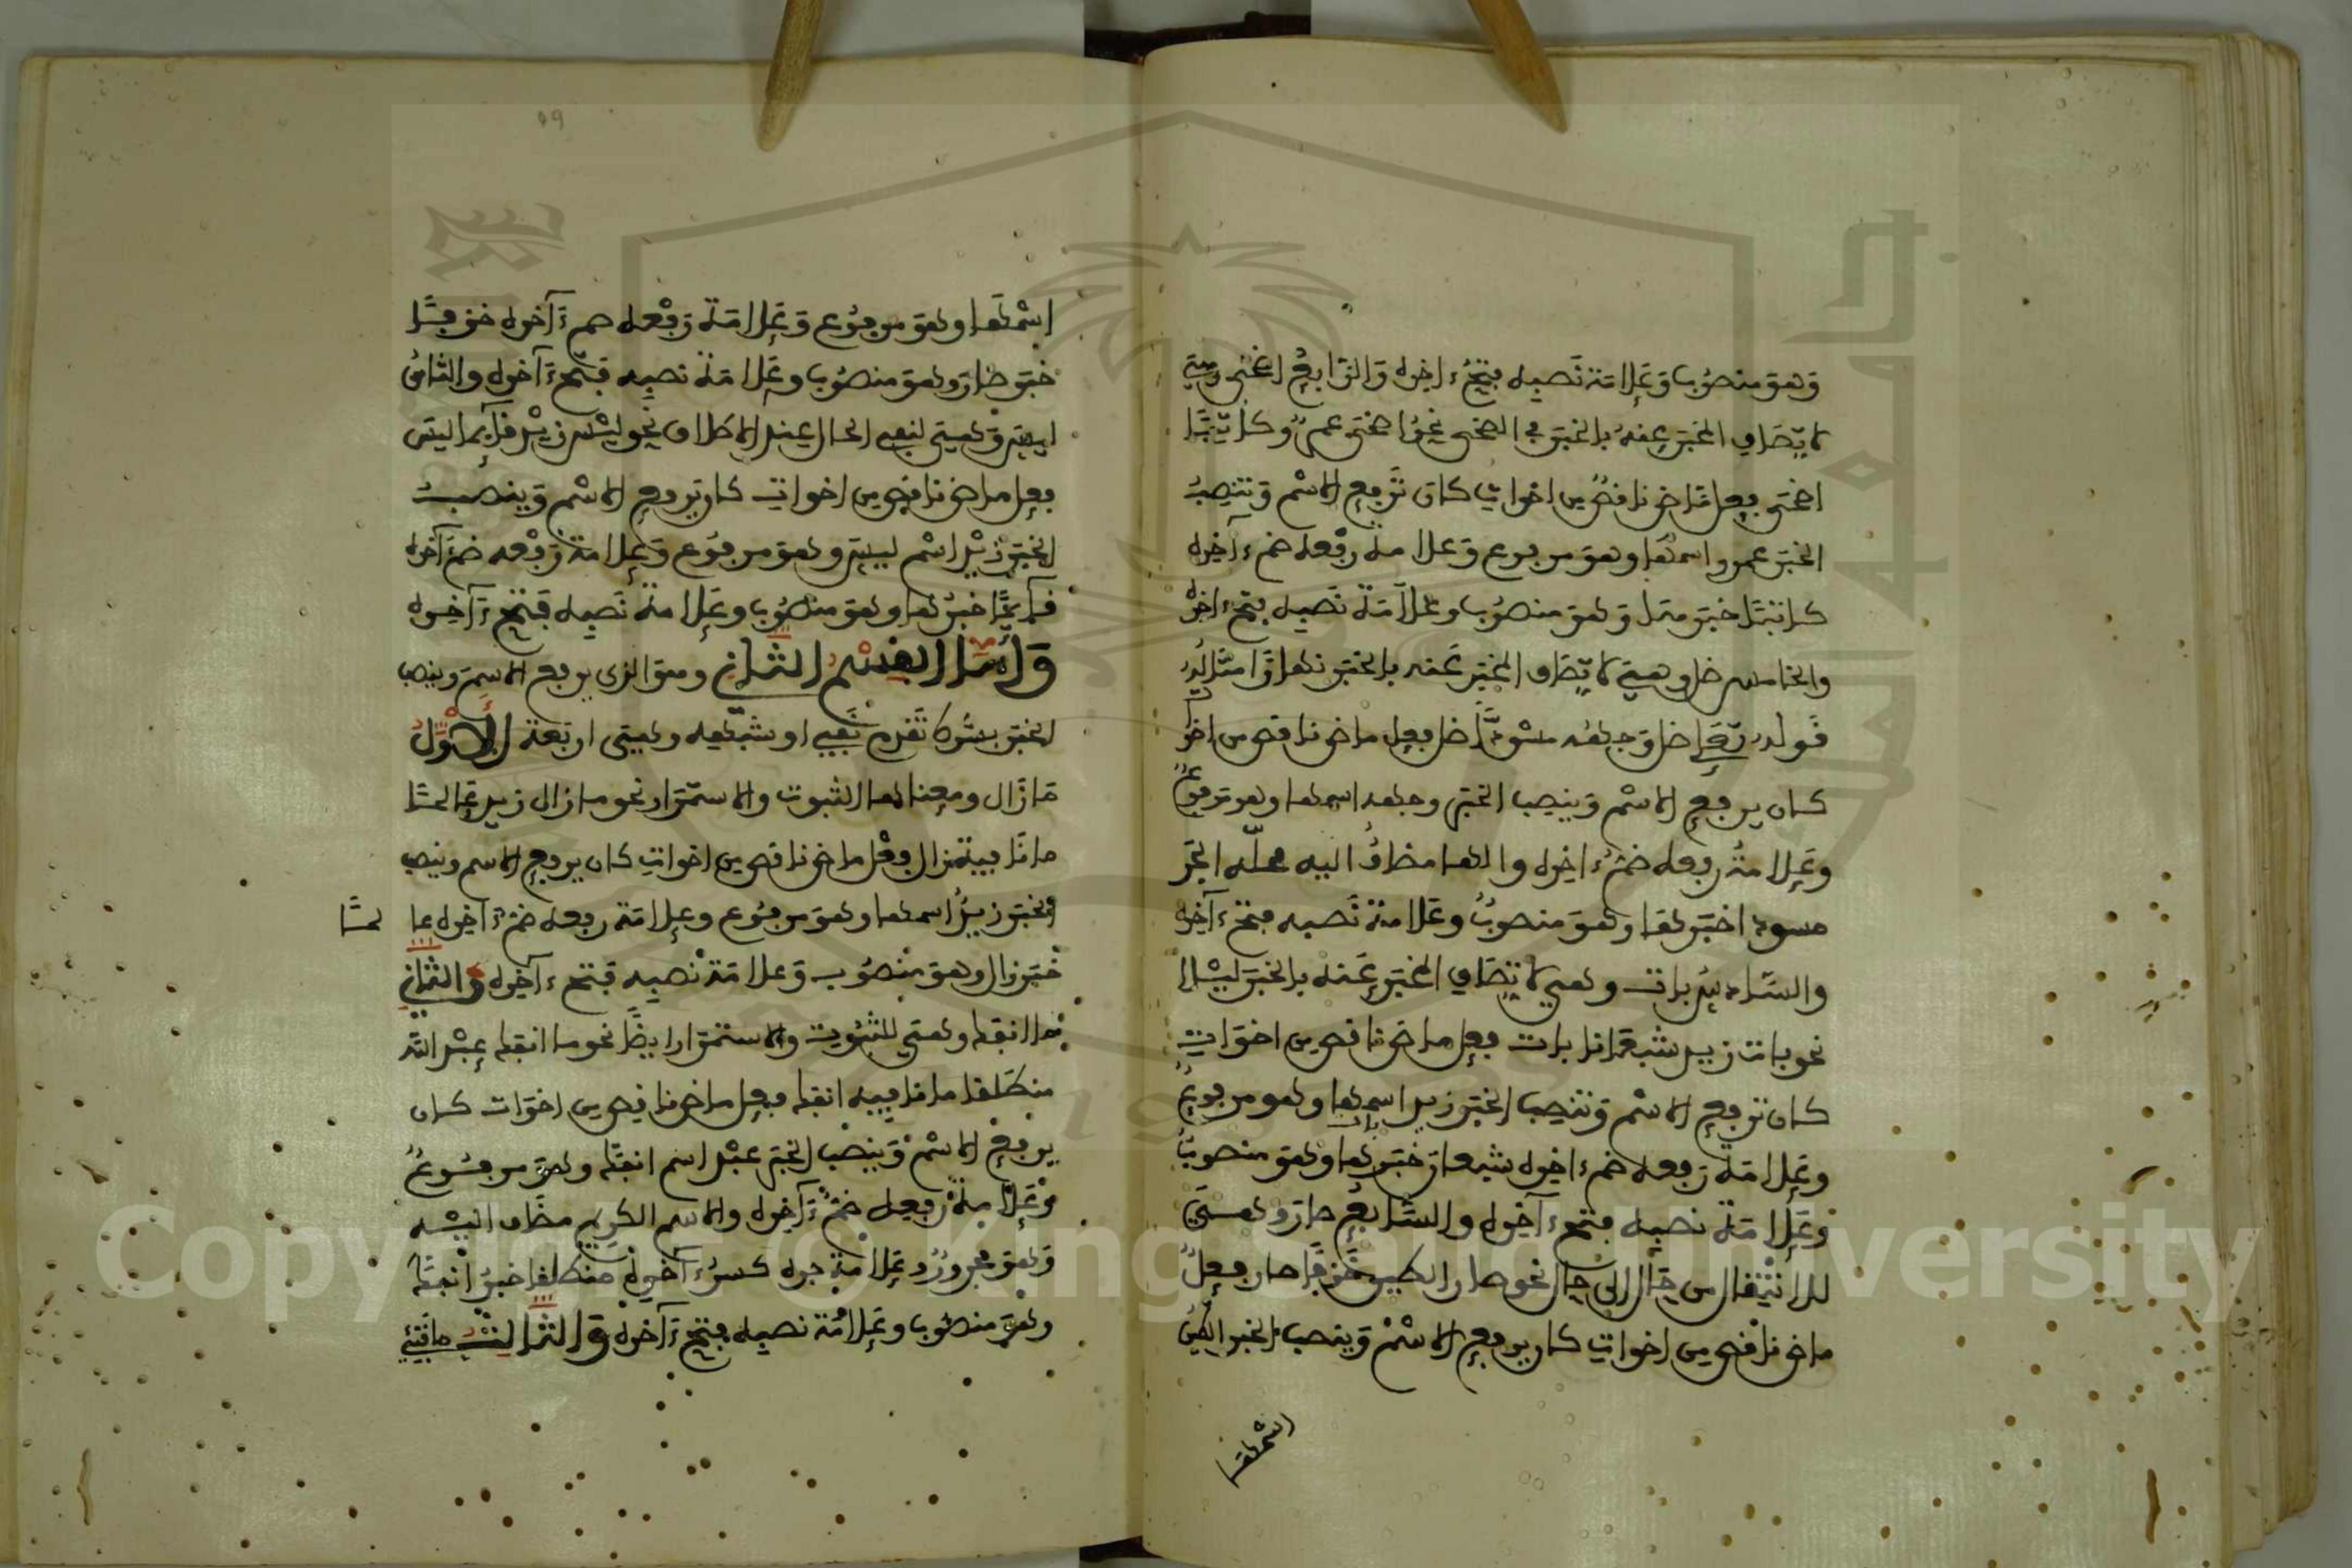 وهو منصوب وعلامة نصبه فتح ءاخره والرابع اضحى وهي
لاتصاف المخبر عنه بالخبر في الضحى نحو اضحى عمرو كاتبا
اضحى فعل ماض ناقص من اخوات كان ترفع الاسم وتنصب
الخبر عمرو اسمها وهو مرفوع وعلامة رفعه ضم ءاخره
كاتبا خبر وهو منصوب وعلامة نصبه فتح ءاخره
والخامس ظل وهي لاتصاف المخبر عنه بالخبر نهارا مثاله
قوله تعلى ظل وجهه مسودا ظل فعل ماض ناقص من اخوا
كان يرفع الاسم وينصب الخبر وجهه اسمها وهو مرفوع
وعلامة رفعه ضم ءاخره والها مضاف اليه محله الجر
مسودا خبرها وهو منصوب وعلامة نصبه فتح ءاخره
والسادس بات وهي لاتصاف المخبر عنه بالخبر ليلا
نحو بات زيد بات فعل ماض ناقص من اخوات
كان ترفع الاسم وتنصب الخبر زيد اسمها وهو مرفوع
وعلامة رفعه ضم ءاخره خبر بات وهو منصوب
وعلامة نصبه فتح ءاخره والسابع صار وهي
للانتقال من حال الى حال نحو صار الطين خزفا صار فعل
ماض ناقص من اخوات كان يرفع الاسم وينصب الخبر الطين
اسمها
٥٩
اسمها وهو مرفوع وعلامة رفعه ضم ءاخره خزفا
خبر صار وهو منصوب وعلامة نصبه فتح ءاخره والثامن
ليس وهي لنفي الحال عند الاطلاق نحو ليس زيد قايما ليس
فعل ماض ناقص من اخوات كان يرفع الاسم وينصب
الخبر زيد اسم ليس وهو مرفوع وعلامة رفعه ضم ءاخره
قايما خبرها وهو منصوب وعلامة نصبه فتح ءاخره
وأما القسم الثاني وهو الذي يرفع الاسم وينصب
الخبر بشرط تقدم نفي او شبهه وهي اربعة الأول
ما زال ومعناها الثبوت والاستمرار نحو ما زال زيد عالما
ما نافية زال فعل ماض ناقص من اخوات كان يرفع الاسم وينصب
الخبر زيد اسمها وهو مرفوع وعلامة رفعه ضم ءاخره عا لما
خبر زال وهو منصوب وعلامة نصبه فتح ءاخره والثاني
ما انفك وهي للثبوت والاستمرار ايضا نحو ما انفك عبد الله
منطلقا ما نافية انفك فعل ماض ناقص من اخوات كان
يرفع الاسم وينصب الخبر عبد اسم انفك وهو مرفوع
وعلامة رفعه ضم ءاخره والاسم الكريم مضاف اليه
وهو مجرور وعلامة جره كسر ءاخره منطلقا خبر انفك
وهو منصوب وعلامة نصبه فتح ءاخره والثالث ما فتئ